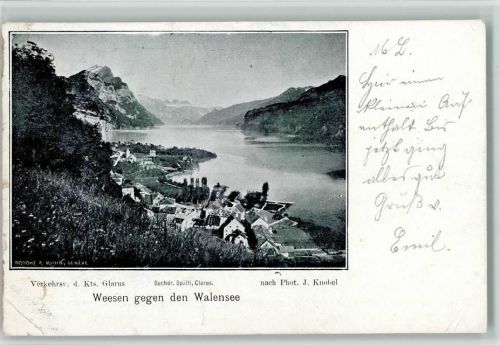 M. L.
Hier einen
kleinen Auf-
enthalt. Bis
jetzt ging
alles gut
Gruß v.
Emil.
BROOKE & KUHN, GENÈVE
Verkehrsv. d. Kts. Glarus
Buchdr. Spälti, Glarus.
nach Phot. J. Knobel
Weesen gegen den Walensee